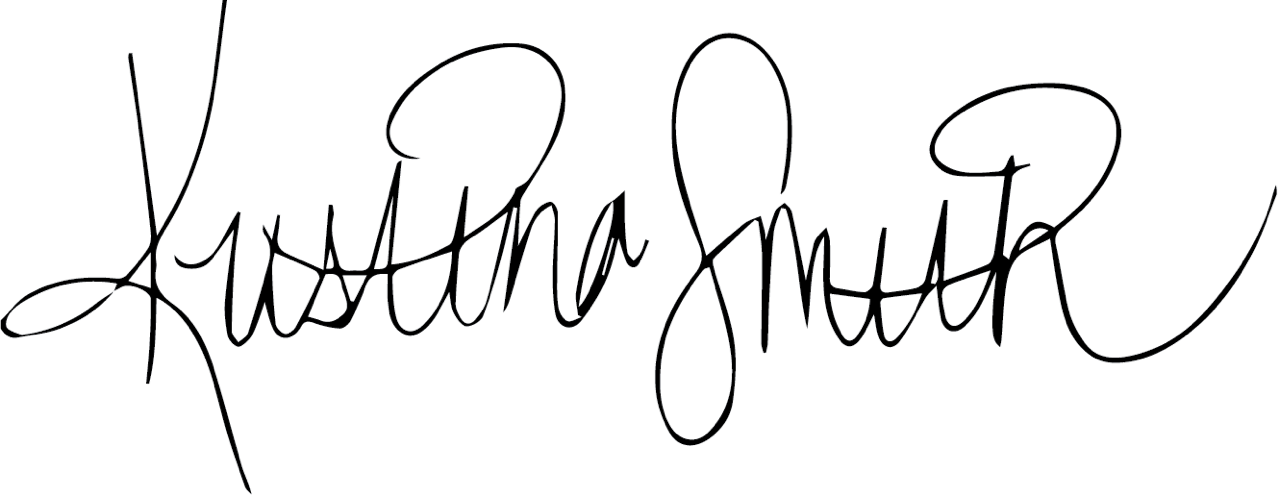 Kristina Smith